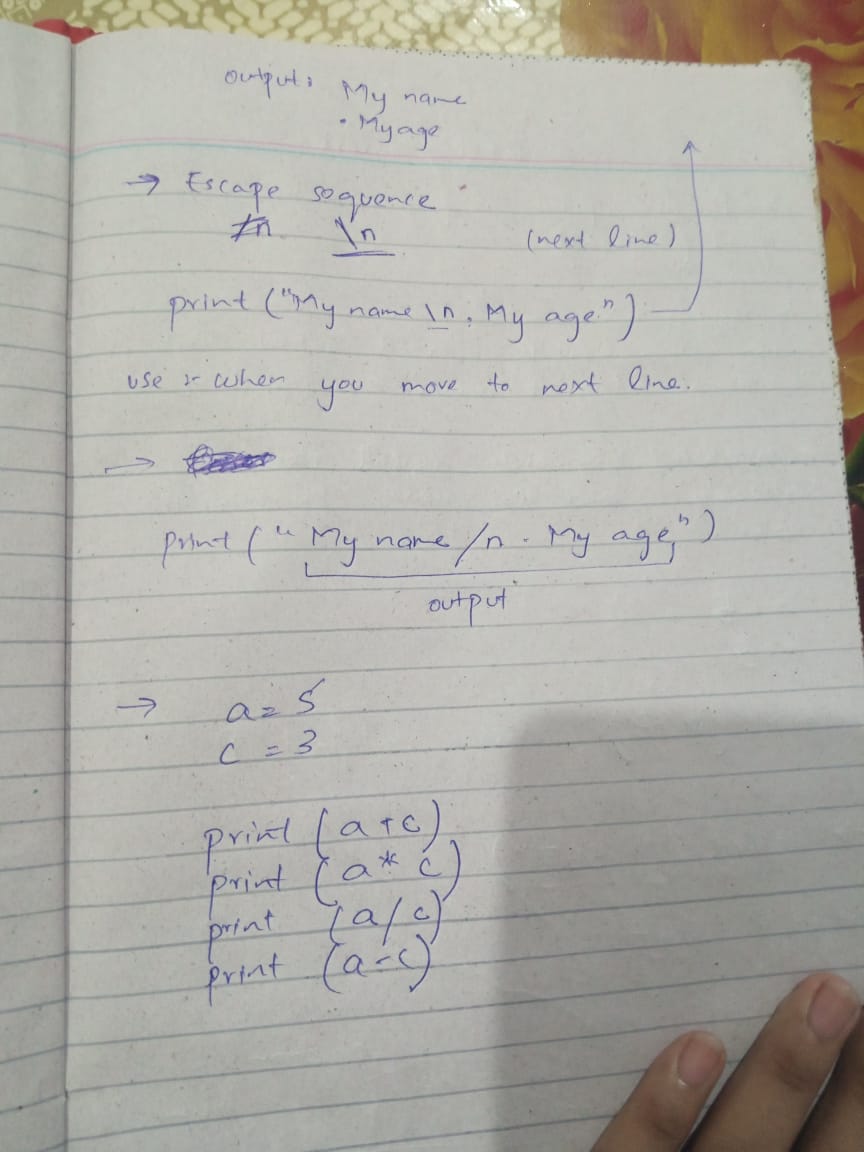 output: My name
• My age
→ Escape sequence
\n
(next line)
print ("My name \n. My age")
use :- when you move to next line.
→
print (" My name /n . My age")
output
→ a = 5
c = 3
print (a+c)
print (a * c)
print (a/c)
print (a-c)